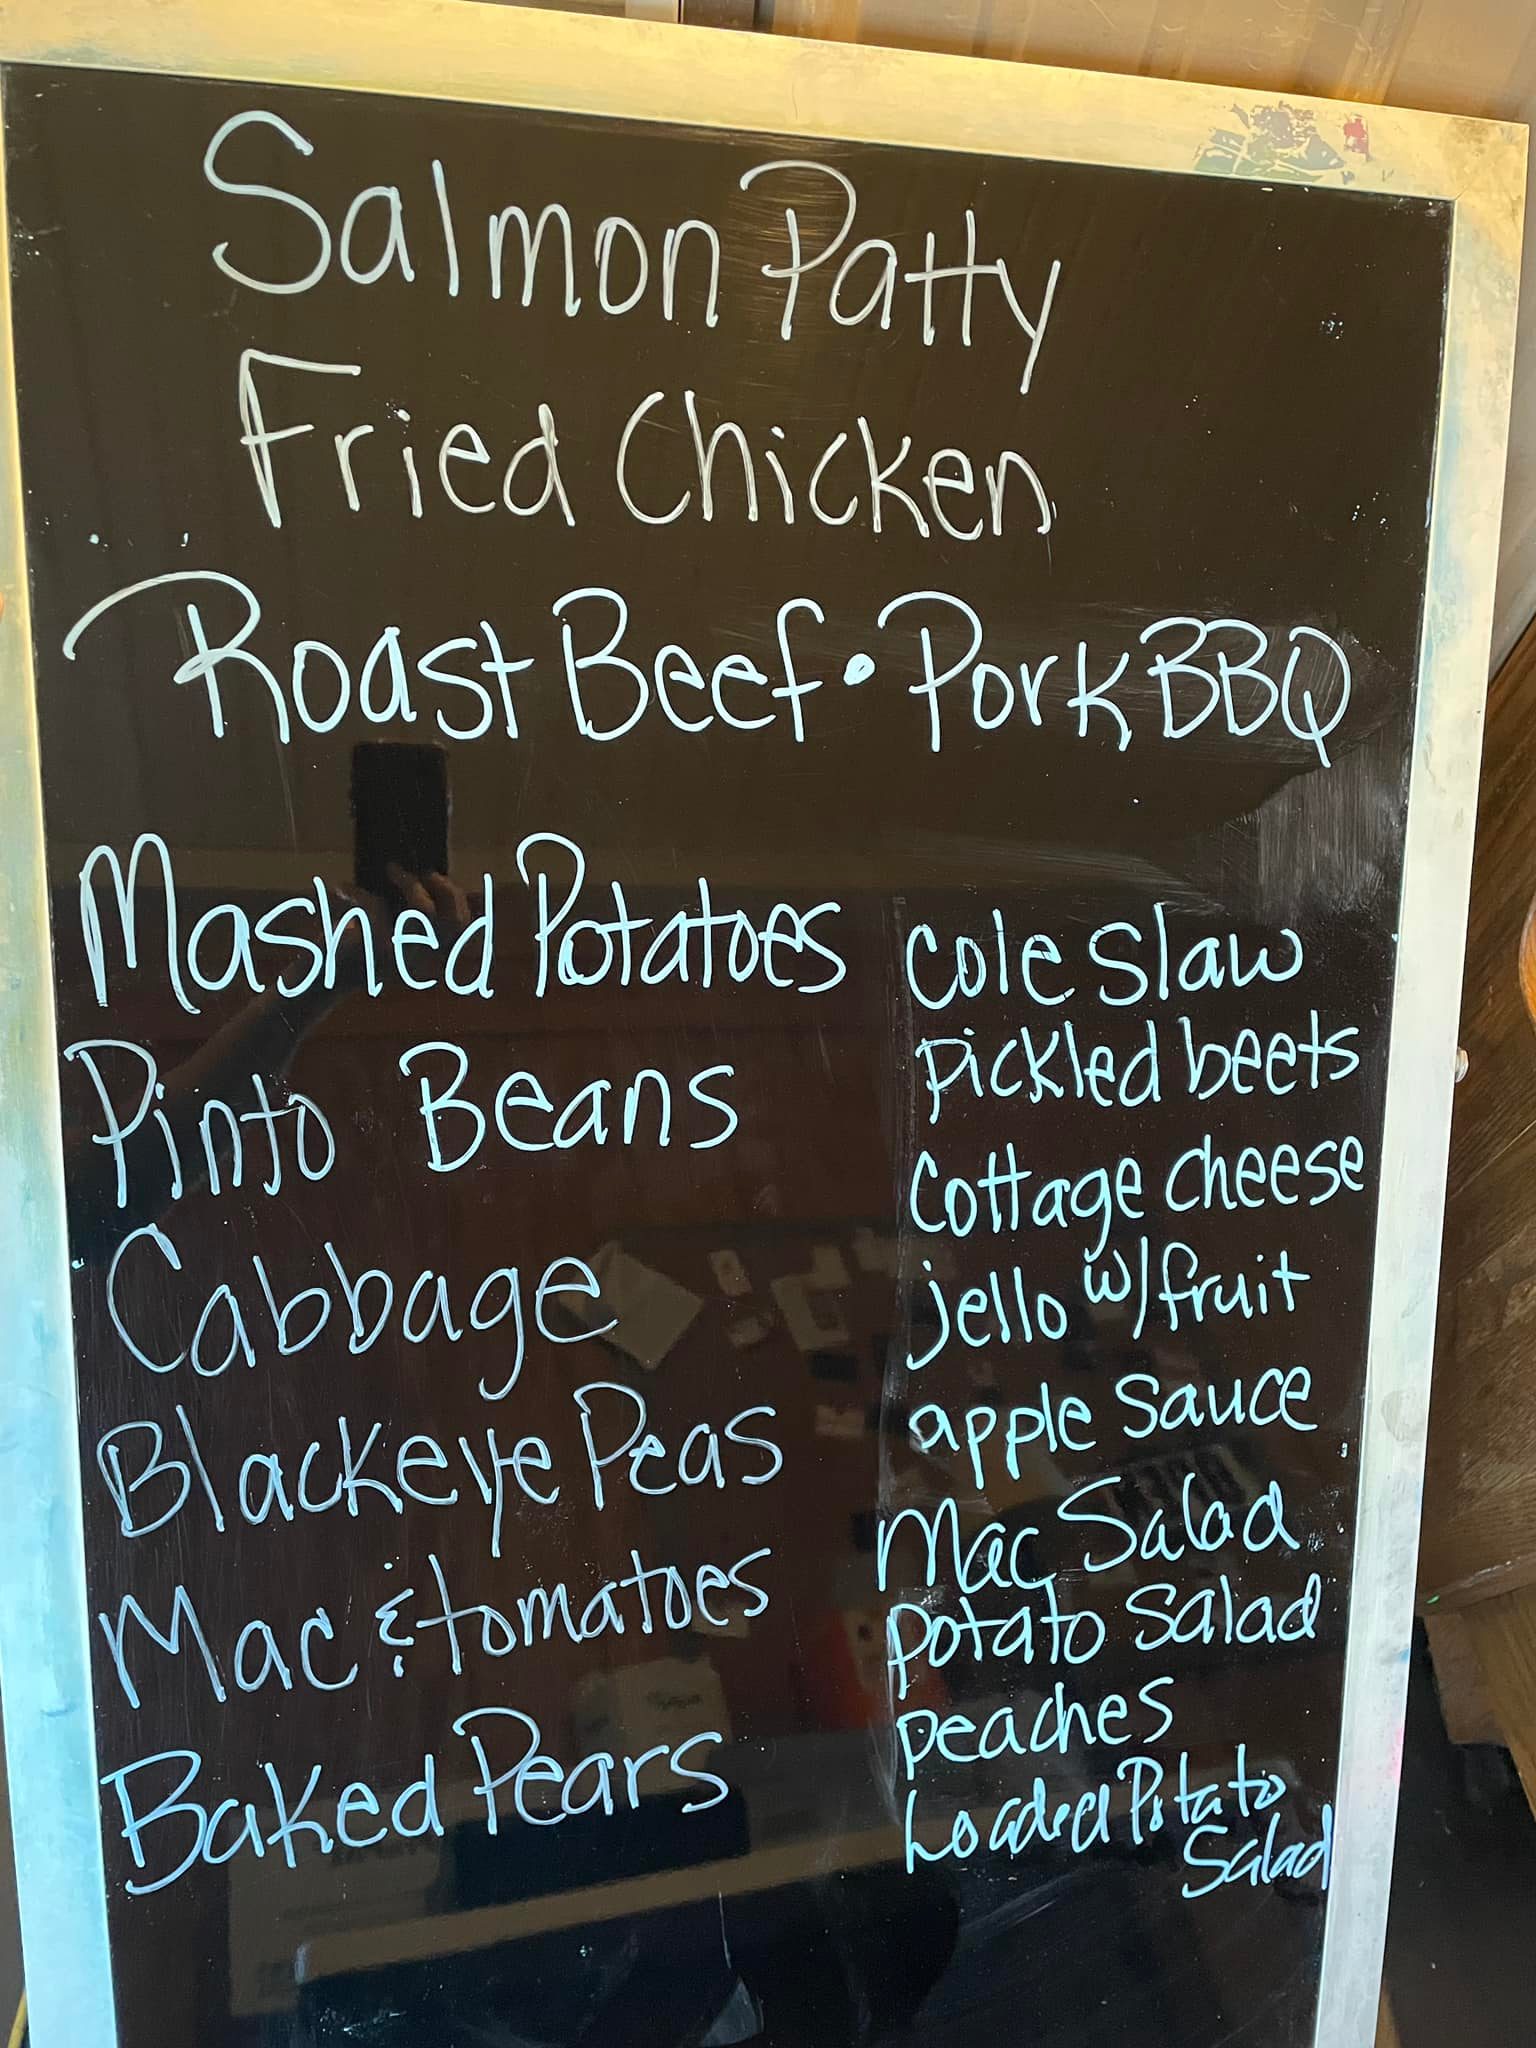 Salmon Patty
Fried Chicken
Roast Beef • Pork BBQ
Mashed Potatoes
Pinto Beans
Cabbage
Blackeye Peas
Mac & tomatoes
Baked Pears
Cole Slaw
Pickled beets
Cottage cheese
jello w/fruit
apple Sauce
Mac Salad
Potato Salad
peaches
Loaded Potato
Salad